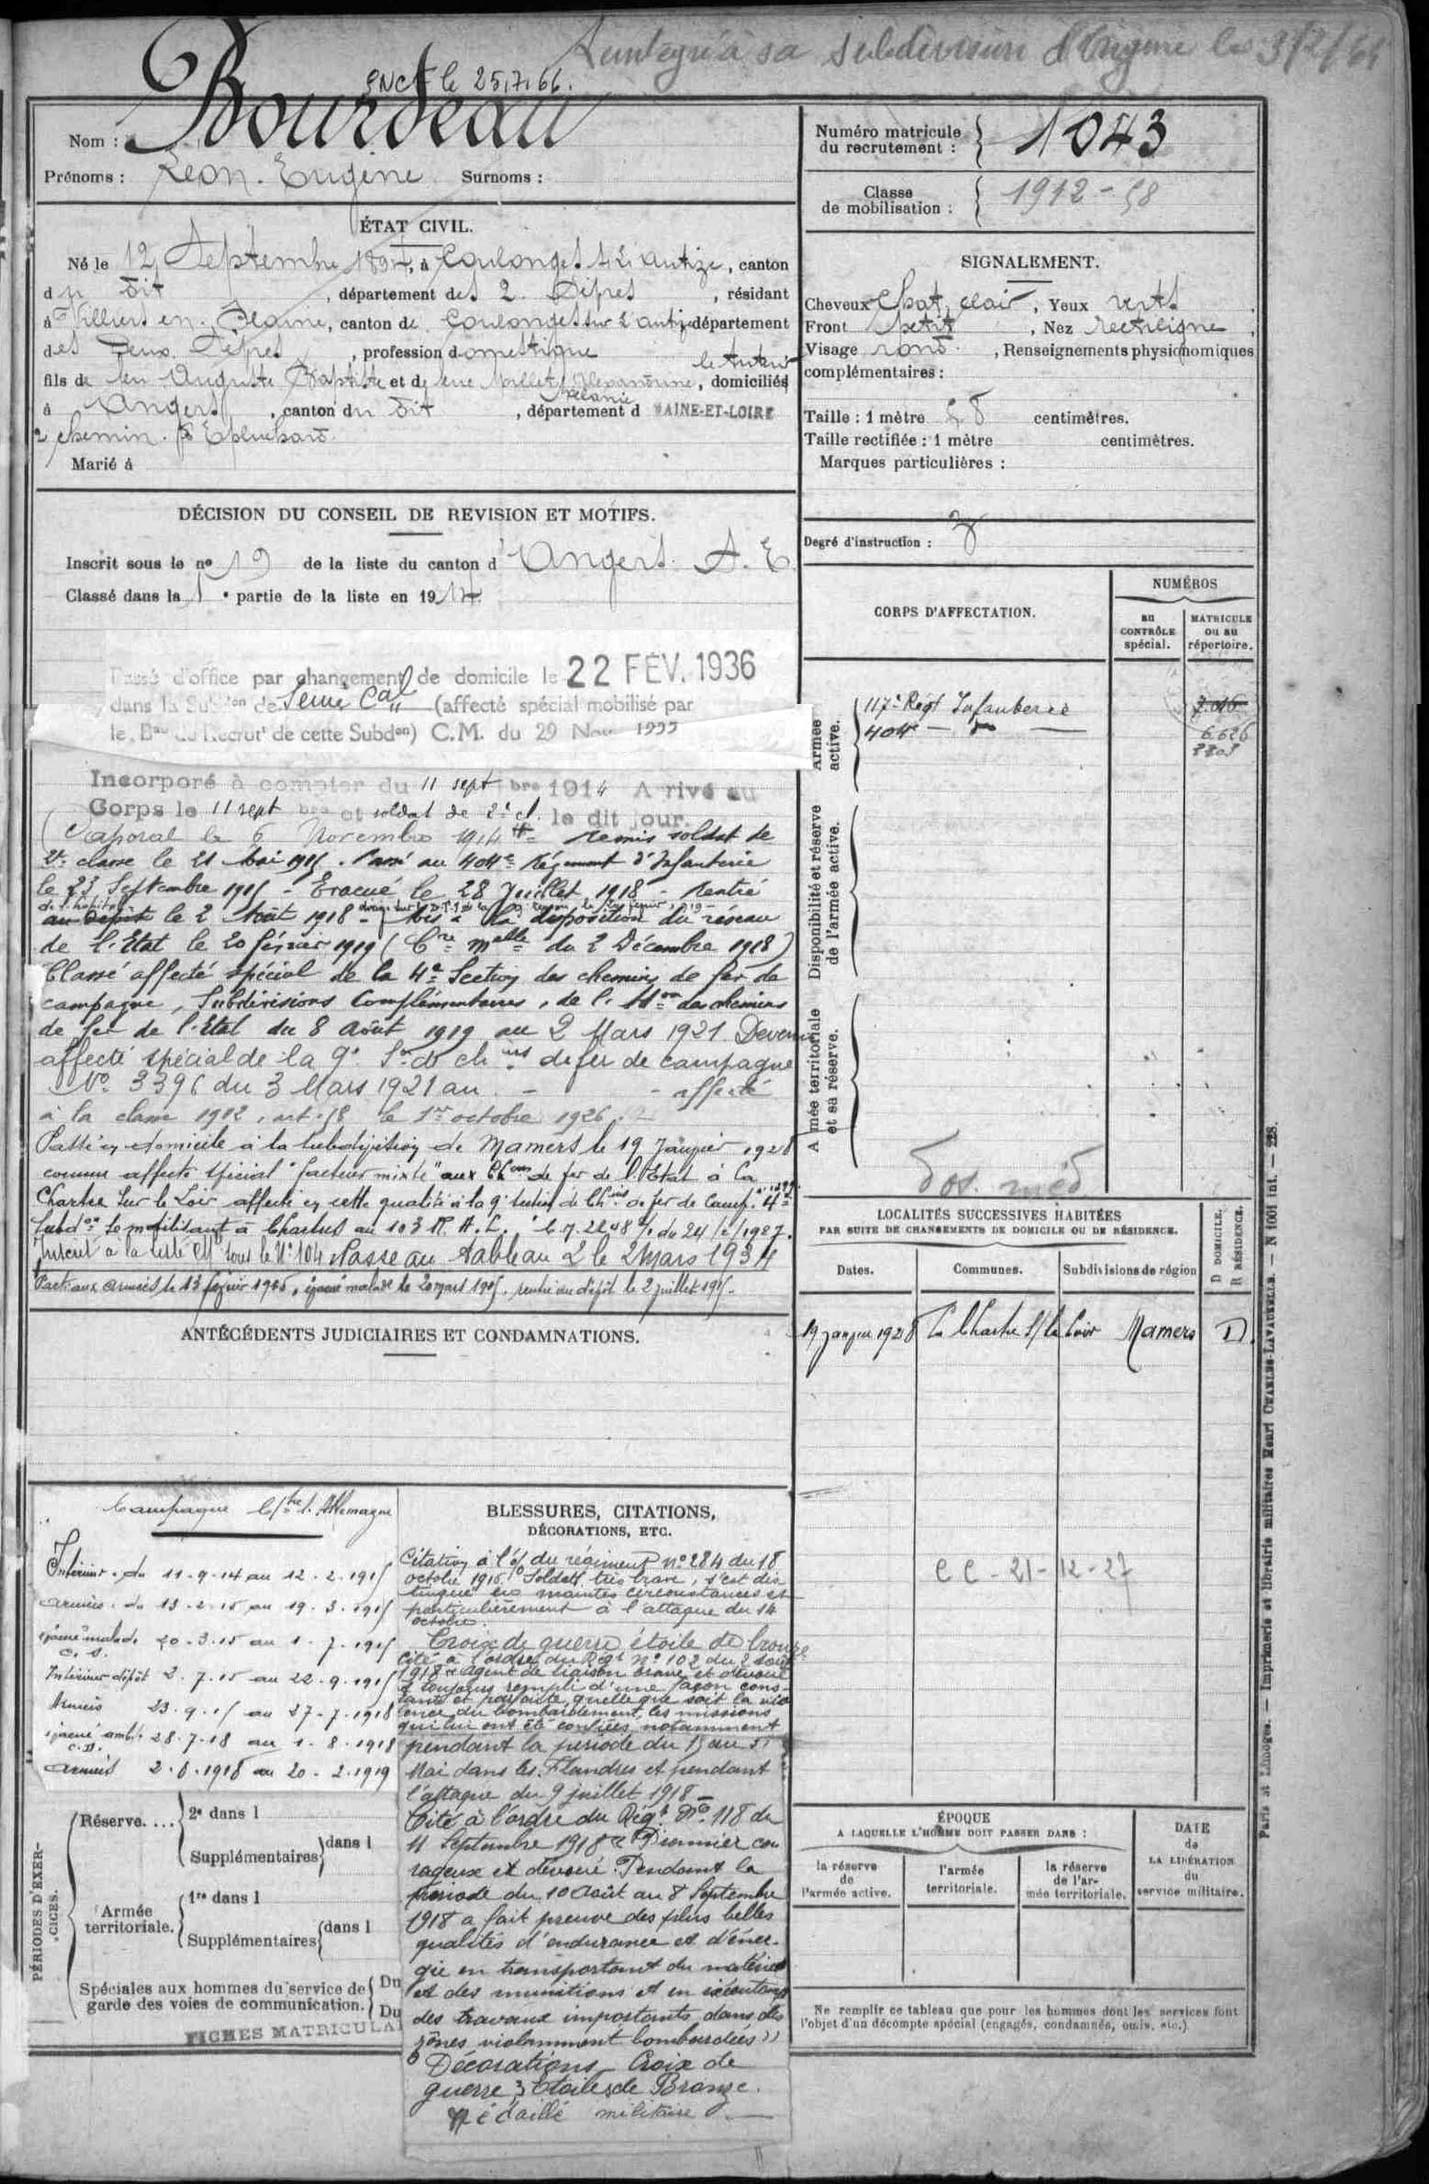 Réintegré à sa subdivision d'Origine le 3/2/66
ENCF le 25.7.66.
Nom : Bourdeau
Prénoms : Léon. Eugène Surnoms :
ÉTAT CIVIL.
Né le 12 Septembre 1894, à Coulonges s. l. autize, canton
du dit, département des 2. Sèvres, résidant
à Villiers en. Plaine, canton de Coulonges sur l'autize département
des Deux Sèvres, profession domestique
fils de feu Auguste Baptiste et de feue Alexandrine Melanie, domiciliés
à Angers, canton du dit, département d MAINE-ET-LOIRE
2 chemin.
Marié à
DÉCISION DU CONSEIL DE REVISION ET MOTIFS.
Inscrit sous le no 19 de la liste du canton d'Angers. A. E.
Classé dans la 1e partie de la liste en 1914.
Passé d'office par changement de domicile le 22 FÉV. 1936
dans la Subdon de Seine Cal (affecté spécial mobilisé par
le Bau de Recrut de cette Subdon) C.M. du 29 Nov 1935
Incorporé à compter du 11 septbre 1914 Arrivé au
Corps le 11 sept bre et soldat de 2e cl. le dit jour.
Caporal le 6 Novembre 1914 remis soldat de
2e classe le 21 Mai 1915. Passé au 404e Régiment d'Infanterie
le 23 Septembre 1915 - Evacué le 28 Juillet 1918 - Rentré
de l'hôpital
au dépôt le 2 Août 1918 - Mis à la disposition du réseau
de l'Etat le 20 février 1919 (Cre Melle du 2 Décembre 1918)
Classé affecté spécial de la 4e Section des chemins de fer de
campagne, Subdivisions Complémentaires, de l' Adon des chemins
de fer de l'Etat du 8 Août 1919 au 2 Mars 1921 Devenu
affecté spécial de la 9e Son de chins de fer de campagne
No 3396 du 3 Mars 1921 au - - affecté
à la classe 1912, art. 58 le 1er octobre 1926.
Passé en domicile à la Subdivision de Mamers le 19 Janvier 1928
comme affecté spécial "facteur mixte" aux Chons de fer de l'Etat à La
Chartre sur le Loir affecté en cette qualité à la 9e section de Chins de fer de Camp. 4e
Subdon se mobilisant à Chartres au 103 R. A. L.
Inscrit à la liste sous le No 104 Passe au tableau 2 le 2 Mars 1934
Parti aux armées le 13 février 1915, évacué malade le 20 mars 1915, rentré au dépôt le 2 juillet 1915.
ANTÉCÉDENTS JUDICIAIRES ET CONDAMNATIONS.
Campagne Ctre l'Allemagne
Intérieur. du 11-9-14 au 12-2-1915
armées. du 13-2-15 au 19-3-1915
évacué malade 20-3-15 au 1-7-1915
Intérieur dépôt 2.7.15 au 22-9-1915
Armées 23.9.15 au 27-7-1918
évacué 28.7.18 au 1-8-1918
armées 2-8-1918 au 20-2-1919
PÉRIODES D'EXERCICES.
Réserve.... 2e dans l
Supplémentaires dans l
Armée territoriale. 1re dans l
Supplémentaires dans l
Spéciales aux hommes du service de garde des voies de communication. Du
Du
FICHES MATRICULA
BLESSURES, CITATIONS,
DÉCORATIONS, ETC.
Citation à l'o/ du régiment no 284 du 18
octobre 1916. Soldat très brave, s'est dis
tingué en maintes circonstances et
particulièrement à l'attaque du 14
octobre.
Croix de guerre étoile de bronze
Cité à l'ordre du Régt No 102 du 2 août
1918 agent de liaison brave et dévoué
a toujours rempli d'une façon cons-
tante et parfaite, quelle que soit la viol
ence du bombardement, les missions
qui lui ont été confiées notamment
pendant la période du 15 au 31
Mai dans les Flandres et pendant
l'attaque du 9 juillet 1918 -
Cité à l'ordre du Régt No 118 du
11 Septembre 1918 « Pionnier cou
rageux et dévoué. Pendant la
période du 10 août au 8 Septembre
1918 a fait preuve des plus belles
qualités d'endurance et d'éner-
gie en transportant du matériel
et des munitions et en exécutant
des travaux importants dans des
zônes violamment bombardées »
Décorations Croix de
guerre 3 Etoiles de Bronze.
Médaille militaire
Numéro matricule du recrutement : 1043
Classe de mobilisation : 1912-58
SIGNALEMENT.
Cheveux Chat. clair, Yeux verts
Front petit, Nez rectiligne,
Visage rond, Renseignements physionomiques
complémentaires :
Taille : 1 mètre 58 centimètres.
Taille rectifiée : 1 mètre centimètres.
Marques particulières :
Degré d'instruction : 3
CORPS D'AFFECTATION.
NUMÉROS
au CONTRÔLE spécial.
MATRICULE ou au répertoire.
Armée active.
117e Régt Infanterie
404e - do -
6.626
Disponibilité et réserve de l'armée active.
Armée territoriale et sa réserve.
Dos. méd
LOCALITÉS SUCCESSIVES HABITÉES
PAR SUITE DE CHANGEMENTS DE DOMICILE OU DE RÉSIDENCE.
Dates. Communes. Subdivisions de région D DOMICILE. R RÉSIDENCE.
19 janvier 1928 La Chartre s/ le Loir Mamers D.
CC-21-12-27
ÉPOQUE
A LAQUELLE L'HOMME DOIT PASSER DANS :
la réserve de l'armée active.
l'armée territoriale.
la réserve de l'armée territoriale.
DATE de LA LIBÉRATION du service militaire.
Ne remplir ce tableau que pour les hommes dont les services font
l'objet d'un décompte spécial (engagés, condamnés, omis, etc.)
Paris et Limoges. — Imprimerie et librairie militaires Henri CHARLES-LAVAUZELLE. — N 1001 int. — 228.